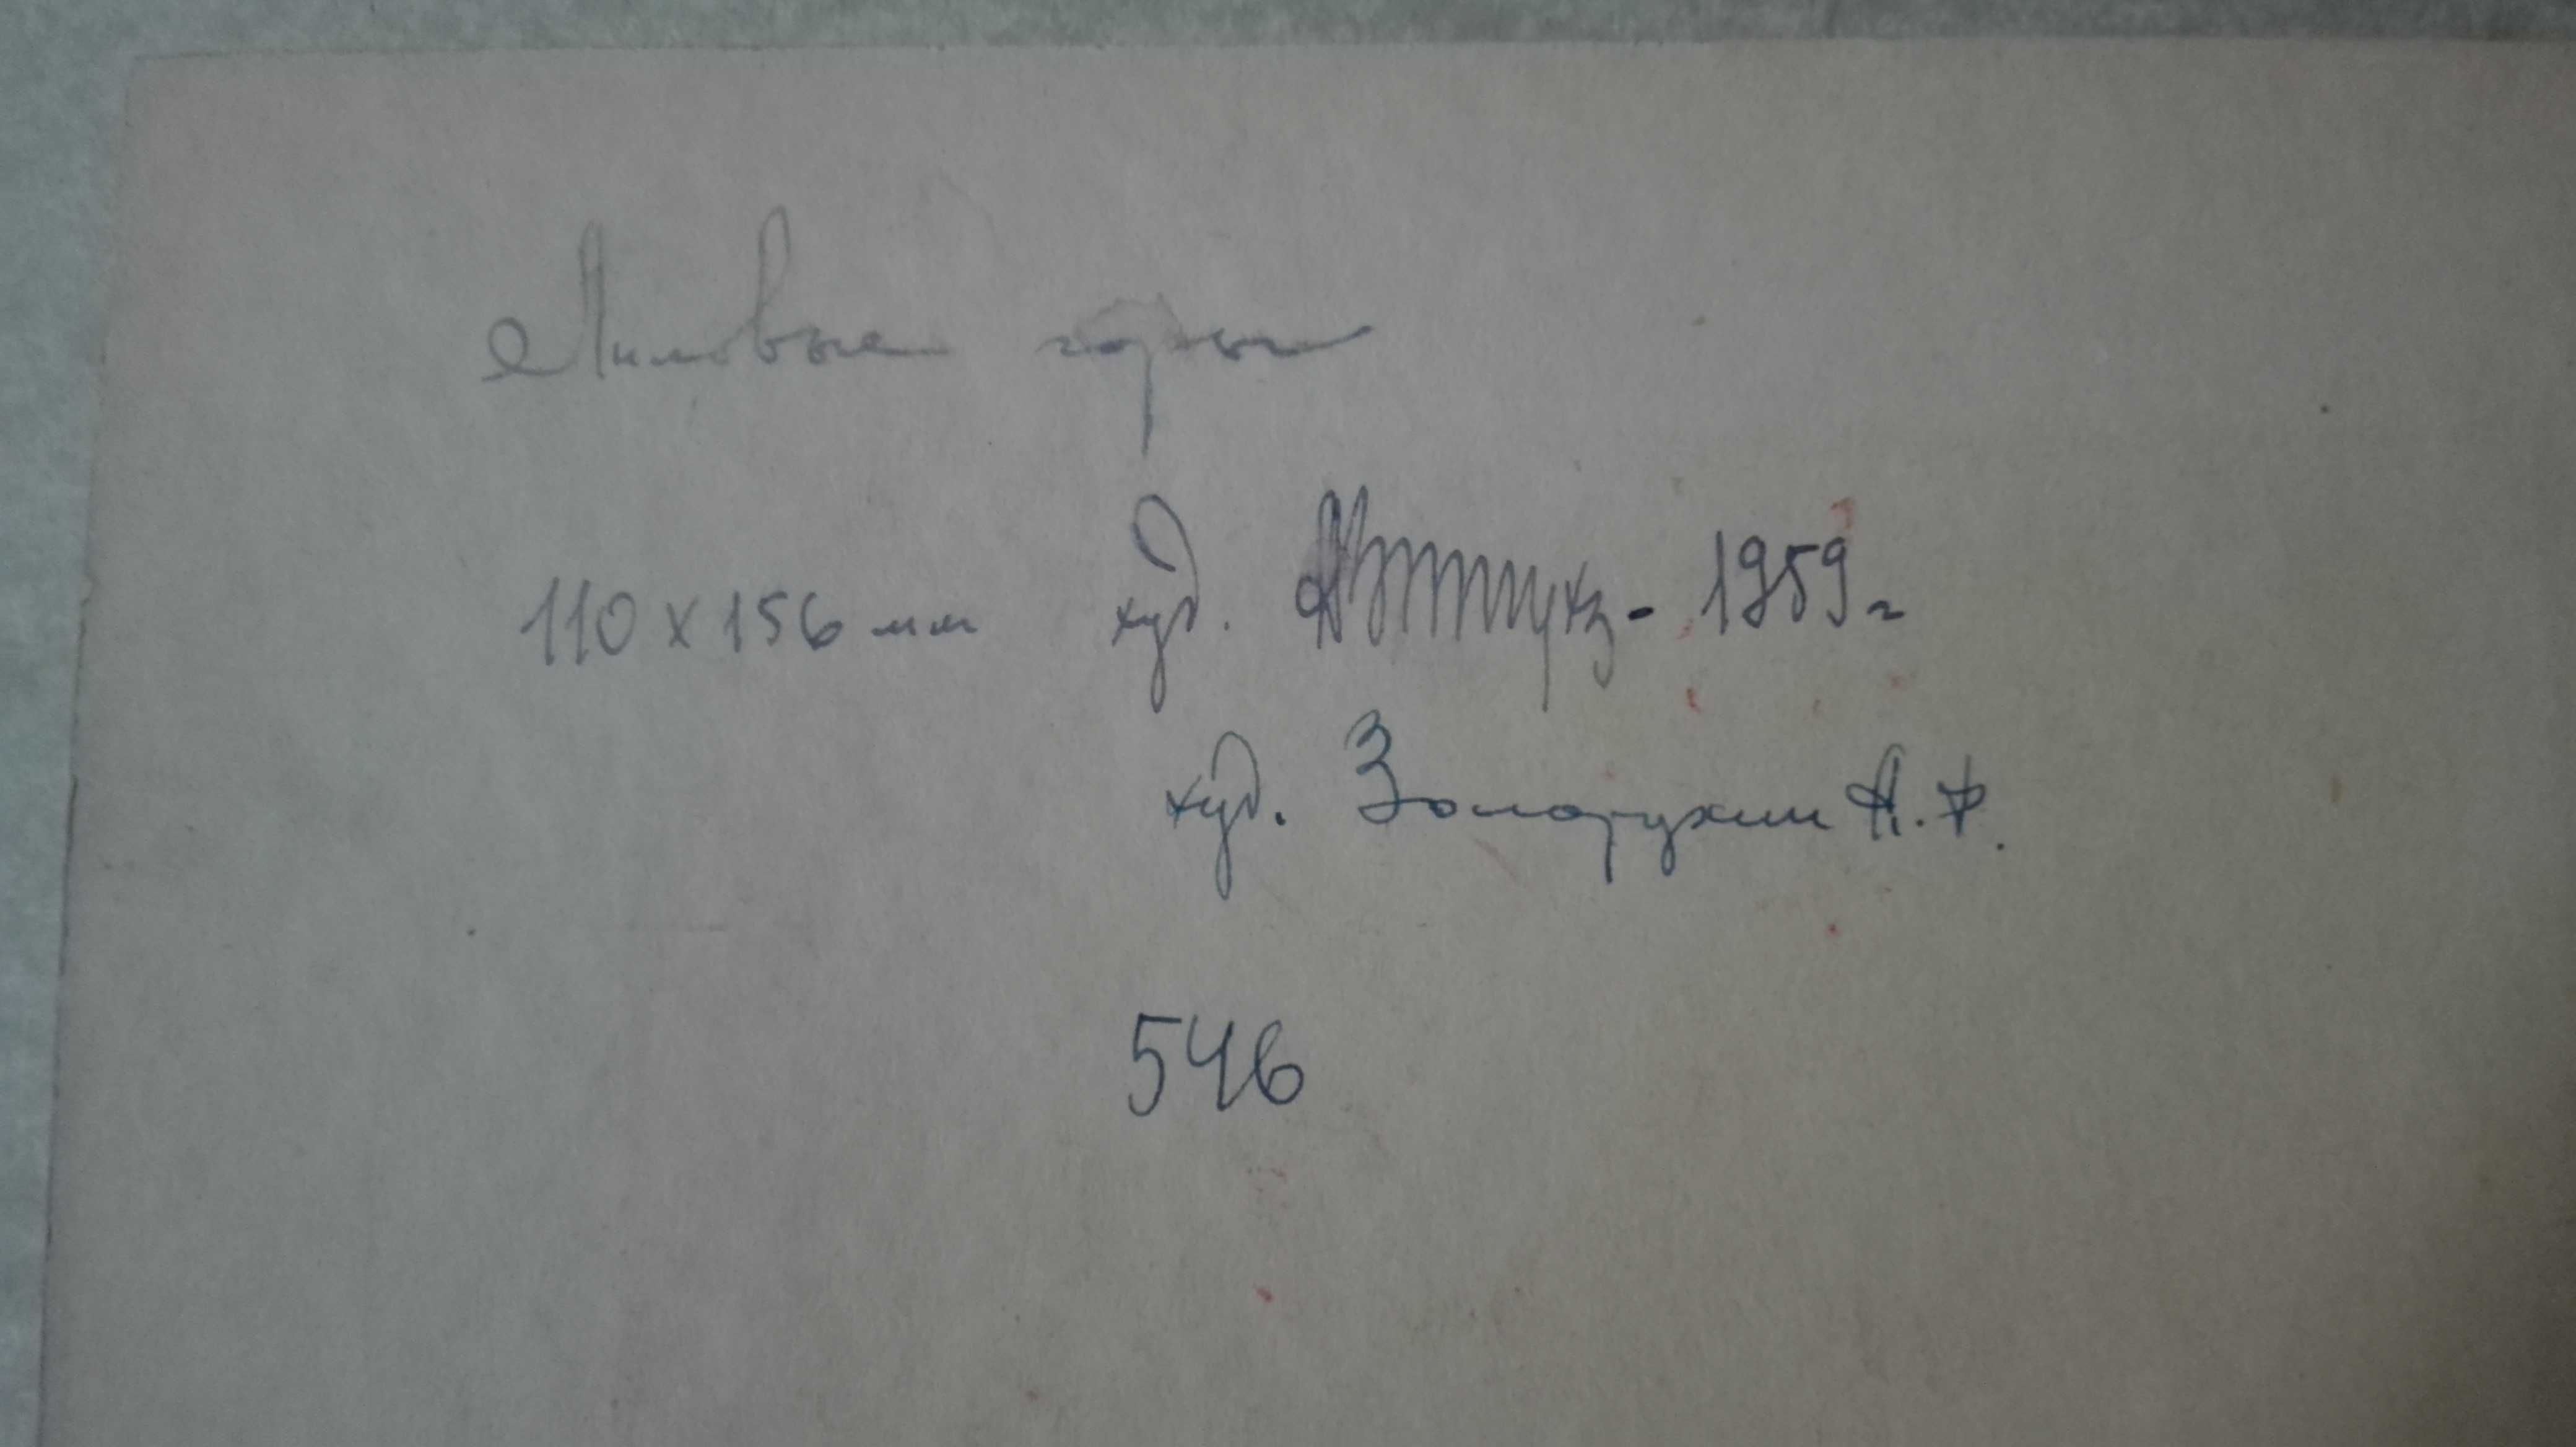 Лиловые горы
110 х 156 мм худ. - 1959 г
худ. Золорухин А. Ф.
546